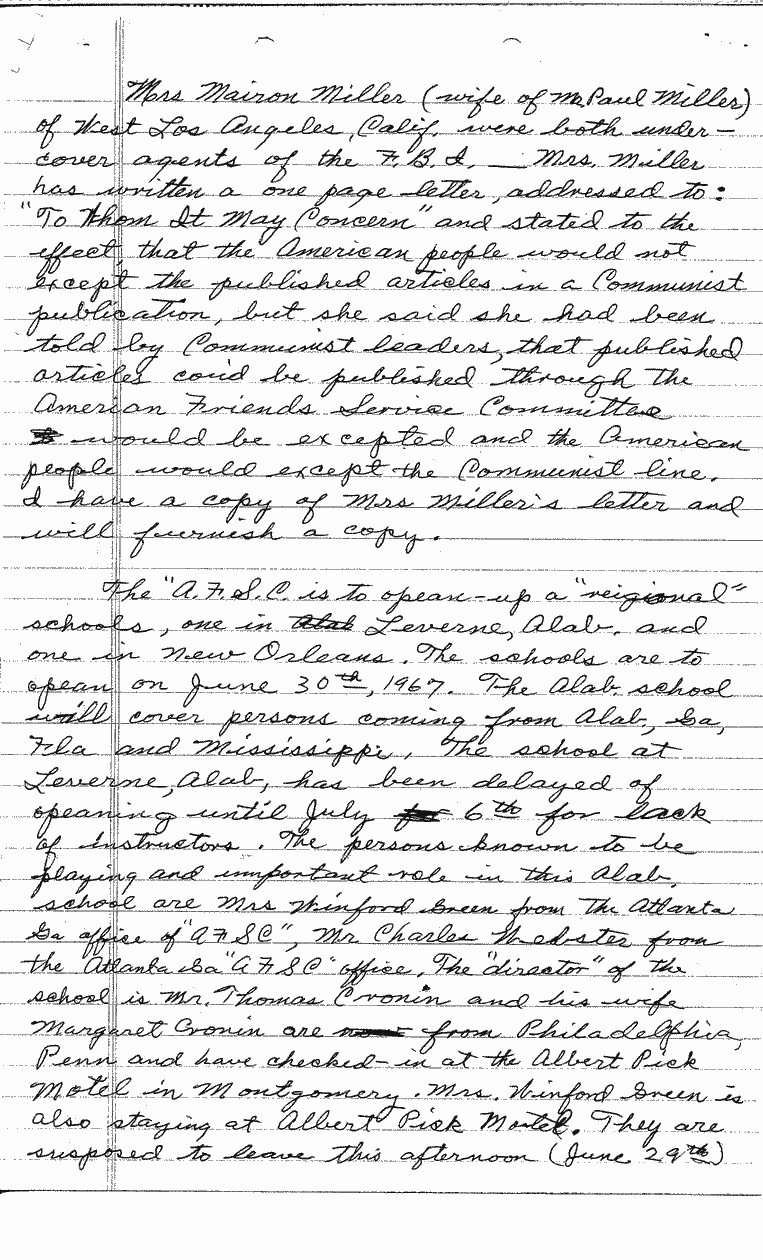 Mrs Mairon Miller (wife of Mr. Paul Miller)
of West Los Angeles, Calif. were both under-
cover agents of the F.B.I. — Mrs. Miller
has written a one page letter, addressed to:
"To Whom It May Concern" and stated to the
effect, that the American people would not
except the published articles in a Communist
publication, but she said she had been
told by Communist leaders, that published
articles coud be published through the
American Friends Service Committee
would be excepted and the American
people would except the Communist line.
I have a copy of Mrs Miller's letter and
will furnish a copy.
The "A.F.S.C. is to opean-up a "reigional"
schools, one in Alab Leverne, Alab. and
one in New Orleans. The schools are to
opean on June 30th, 1967. The Alab. school
will cover persons coming from Alab, Ga,
Fla and Mississippi. The school at
Leverne, Alab, has been delayed of
opeaning until July for 6th for lack
of instructors. The persons known to be
playing and inmportant role in this Alab.
school are Mrs Winford Green from The Atlanta
Ga office of "AFSC", Mr Charles Webster from
the Atlanta Ga "AFSC" office. The "director" of the
school is Mr. Thomas Cronin and his wife
Margaret Cronin are from Philadelphia,
Penn and have checked-in at the Albert Pick
Motel in Montgomery. Mrs. Winford Green is
also staying at Albert Pick Motel. They are
susposed to leave this afternoon (June 29th)